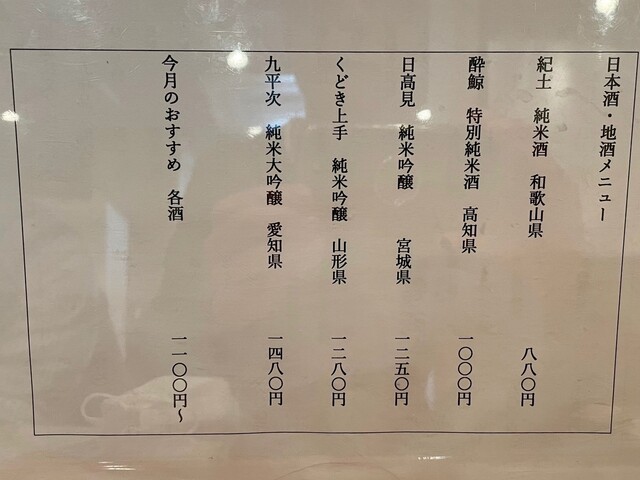 日本酒・地酒メニュー
紀土 純米酒 和歌山県 八八〇円
酔鯨 特別純米酒 高知県 一〇〇〇円
日高見 純米吟醸 宮城県 一二五〇円
くどき上手 純米吟醸 山形県 一二八〇円
九平次 純米大吟醸 愛知県 一四八〇円
今月のおすすめ 各酒 一一〇〇円～